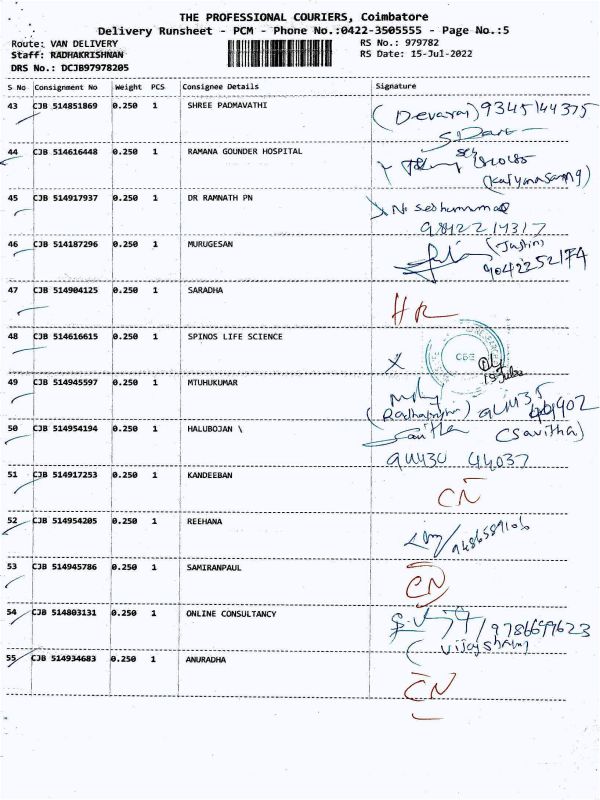 THE PROFESSIONAL COURIERS, Coimbatore
Delivery Runsheet - PCM - Phone No.:0422-3505555 - Page No.:5
Route: VAN DELIVERY RS No.: 979782
Staff: RADHAKRISHNAN RS Date: 15-Jul-2022
DRS No.: DCJB97978205
S No Consignment No Weight PCS Consignee Details Signature
43 CJB 514851869 0.250 1 SHREE PADMAVATHI
(Devaraj) 9345144375
44 CJB 514616448 0.250 1 RAMANA GOUNDER HOSPITAL
45 CJB 514917937 0.250 1 DR RAMNATH PN
46 CJB 514187296 0.250 1 MURUGESAN
(Justin)
9042252174
47 CJB 514904125 0.250 1 SARADHA
HR
48 CJB 514616615 0.250 1 SPINOS LIFE SCIENCE
X CBE
49 CJB 514945597 0.250 1 MTUHUKUMAR
50 CJB 514954194 0.250 1 HALUBOJAN \
Savitha (Savitha)
44037
51 CJB 514917253 0.250 1 KANDEEBAN
CN
52 CJB 514954205 0.250 1 REEHANA
9486589106
53 CJB 514945786 0.250 1 SAMIRANPAUL
CN
54 CJB 514803131 0.250 1 ONLINE CONSULTANCY
55 CJB 514934683 0.250 1 ANURADHA
CN